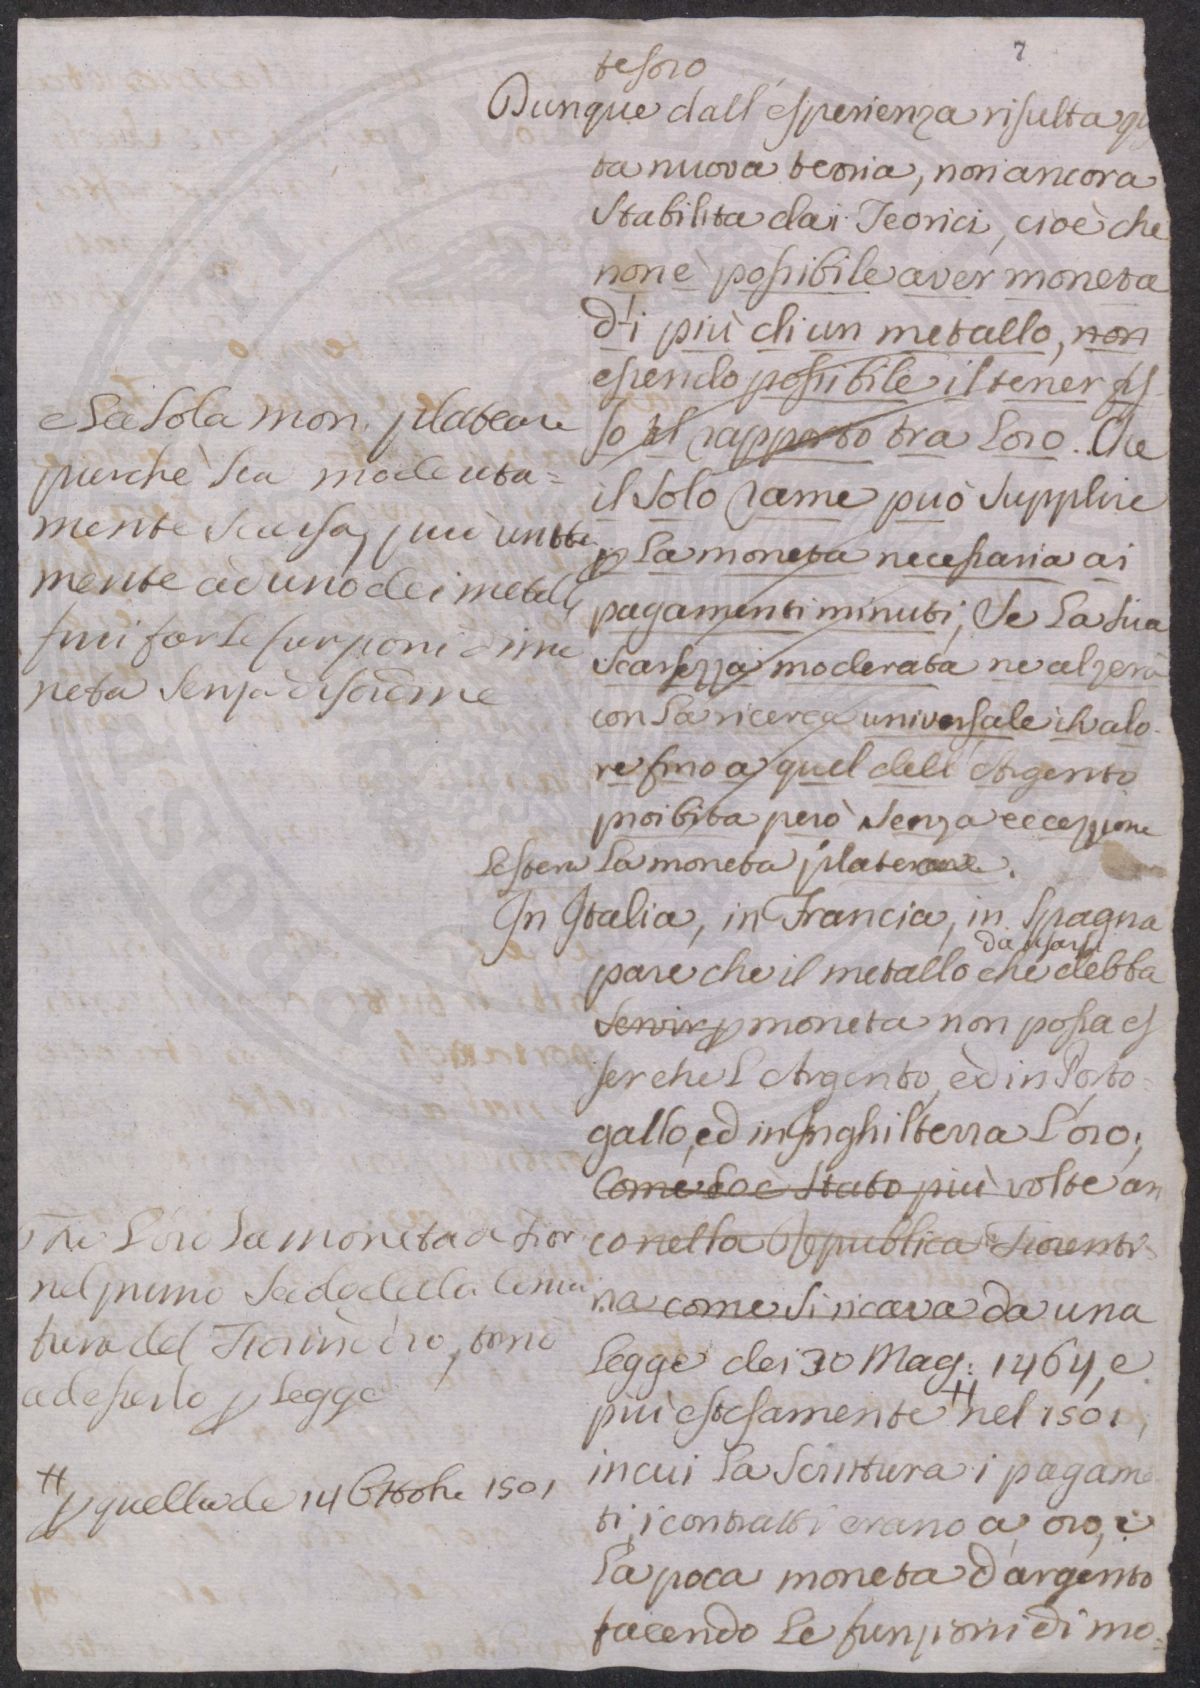 7
tesoro
Dunque dall'esperienza risulta qu
ta nuova teoria, non ancora
stabilita dai Teorici, cioè che
non è possibile aver moneta
di più di un metallo, non
essendo possibile il tener fis
so il rapporto tra loro. Che
il solo rame può supplire
p la moneta necessaria ai
pagamenti minuti, se la sua
scarsezza moderata ne alzerà
con la ricerca universale il valo
re fino a quel dell'Argento
proibita però senza eccezzione
l'estera la moneta plateare.
In Italia, in Francia, in Spagna
da usarsi
pare che il metallo che debba
servir p moneta non possa es
ser che l'Argento, ed in Porto=
gallo, ed in Inghilterra l'oro,
come lo è stato più volte an
co nella Repubblica Fiorenti=
na come si ricava da una
legge dei 30 Mag: 1464, e
più estesamente # nel 1501,
in cui la scrittura i pagame
ti, i contratti erano a oro, e
la poca moneta d'argento
facendo le funzioni di mo=
e la sola mon. plateare
purchè sia moderata=
mente scarsa, può
mente ad uno dei metalli
fini far le funzioni di mo
neta senza disordine
che l'oro la moneta a Fior
nel primo secolo della
tura del Fiorino d'oro, tornò
ad esserlo p legge
# p quella de 14 Ottobre 1501